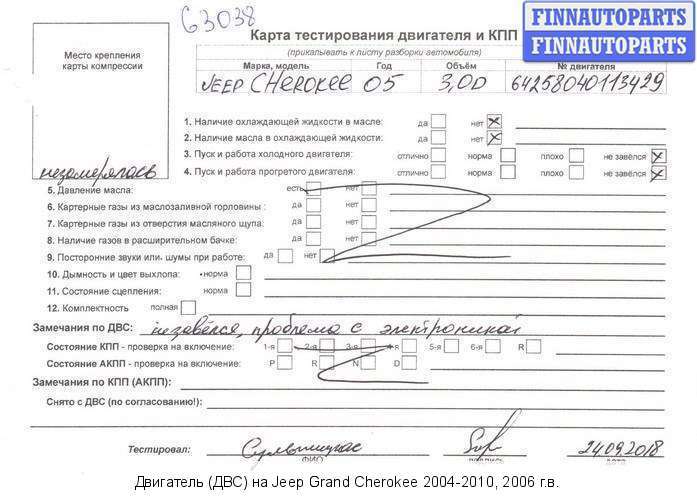 63038
Карта тестирования двигателя и КПП
FINNAUTOPARTS
FINNAUTOPARTS
(прикалывать к листу разборки автомобиля)
Место крепления
карты компрессии
Марка, модель Год Объём № двигателя
JEEP CHEROKEE 05 3,0D 64258040113429
1. Наличие охлаждающей жидкости в масле: да нет
2. Наличие масла в охлаждающей жидкости: да нет
3. Пуск и работа холодного двигателя: отлично норма плохо не завёлся
4. Пуск и работа прогретого двигателя: отлично норма плохо не завёлся
незамерялась
5. Давление масла: есть нет
6. Картерные газы из маслозаливной горловины : да нет
7. Картерные газы из отверстия масляного щупа: да нет
8. Наличие газов в расширительном бачке: да нет
9. Посторонние звуки или шумы при работе: да нет
10. Дымность и цвет выхлопа: норма
11. Состояние сцепления: норма
12. Комплектность полная
Замечания по ДВС: незавёлся, проблема с электроникой
Состояние КПП - проверка на включение: 1-я 2-я 3-я 4-я 5-я 6-я R
Состояние АКПП - проверка на включение: P R N D
Замечания по КПП (АКПП):
Снято с ДВС (по согласованию!):
Тестировал: 24.09.2018
ФИО подпись
Двигатель (ДВС) на Jeep Grand Cherokee 2004-2010, 2006 г.в.